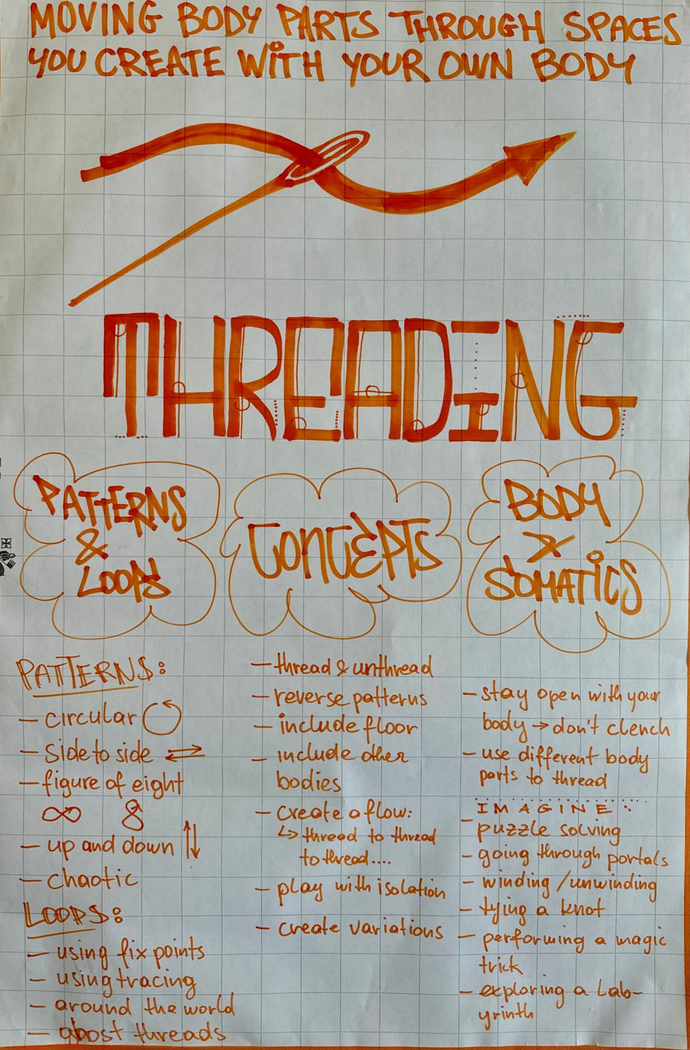 MOVING BODY PARTS THROUGH SPACES
YOU CREATE WITH YOUR OWN BODY
THREADING
PATTERNS
&
LOOPS
CONCEPTS
BODY
X
SOMATICS
PATTERNS:
– circular
– Side to side
– figure of eight
∞ 8
– up and down
– chaotic
LOOPS:
– using fix points
– using tracing
– around the world
– ghost threads
– thread & unthread
– reverse patterns
– include floor
– include other
bodies
– create a flow:
↳ thread to thread
to thread....
– play with isolation
– create variations
– stay open with your
body → don't clench
– use different body
parts to thread
IMAGINE:
– puzzle solving
– going through portals
– winding / unwinding
– tying a knot
– performing a magic
trick
– exploring a Lab-
yrinth